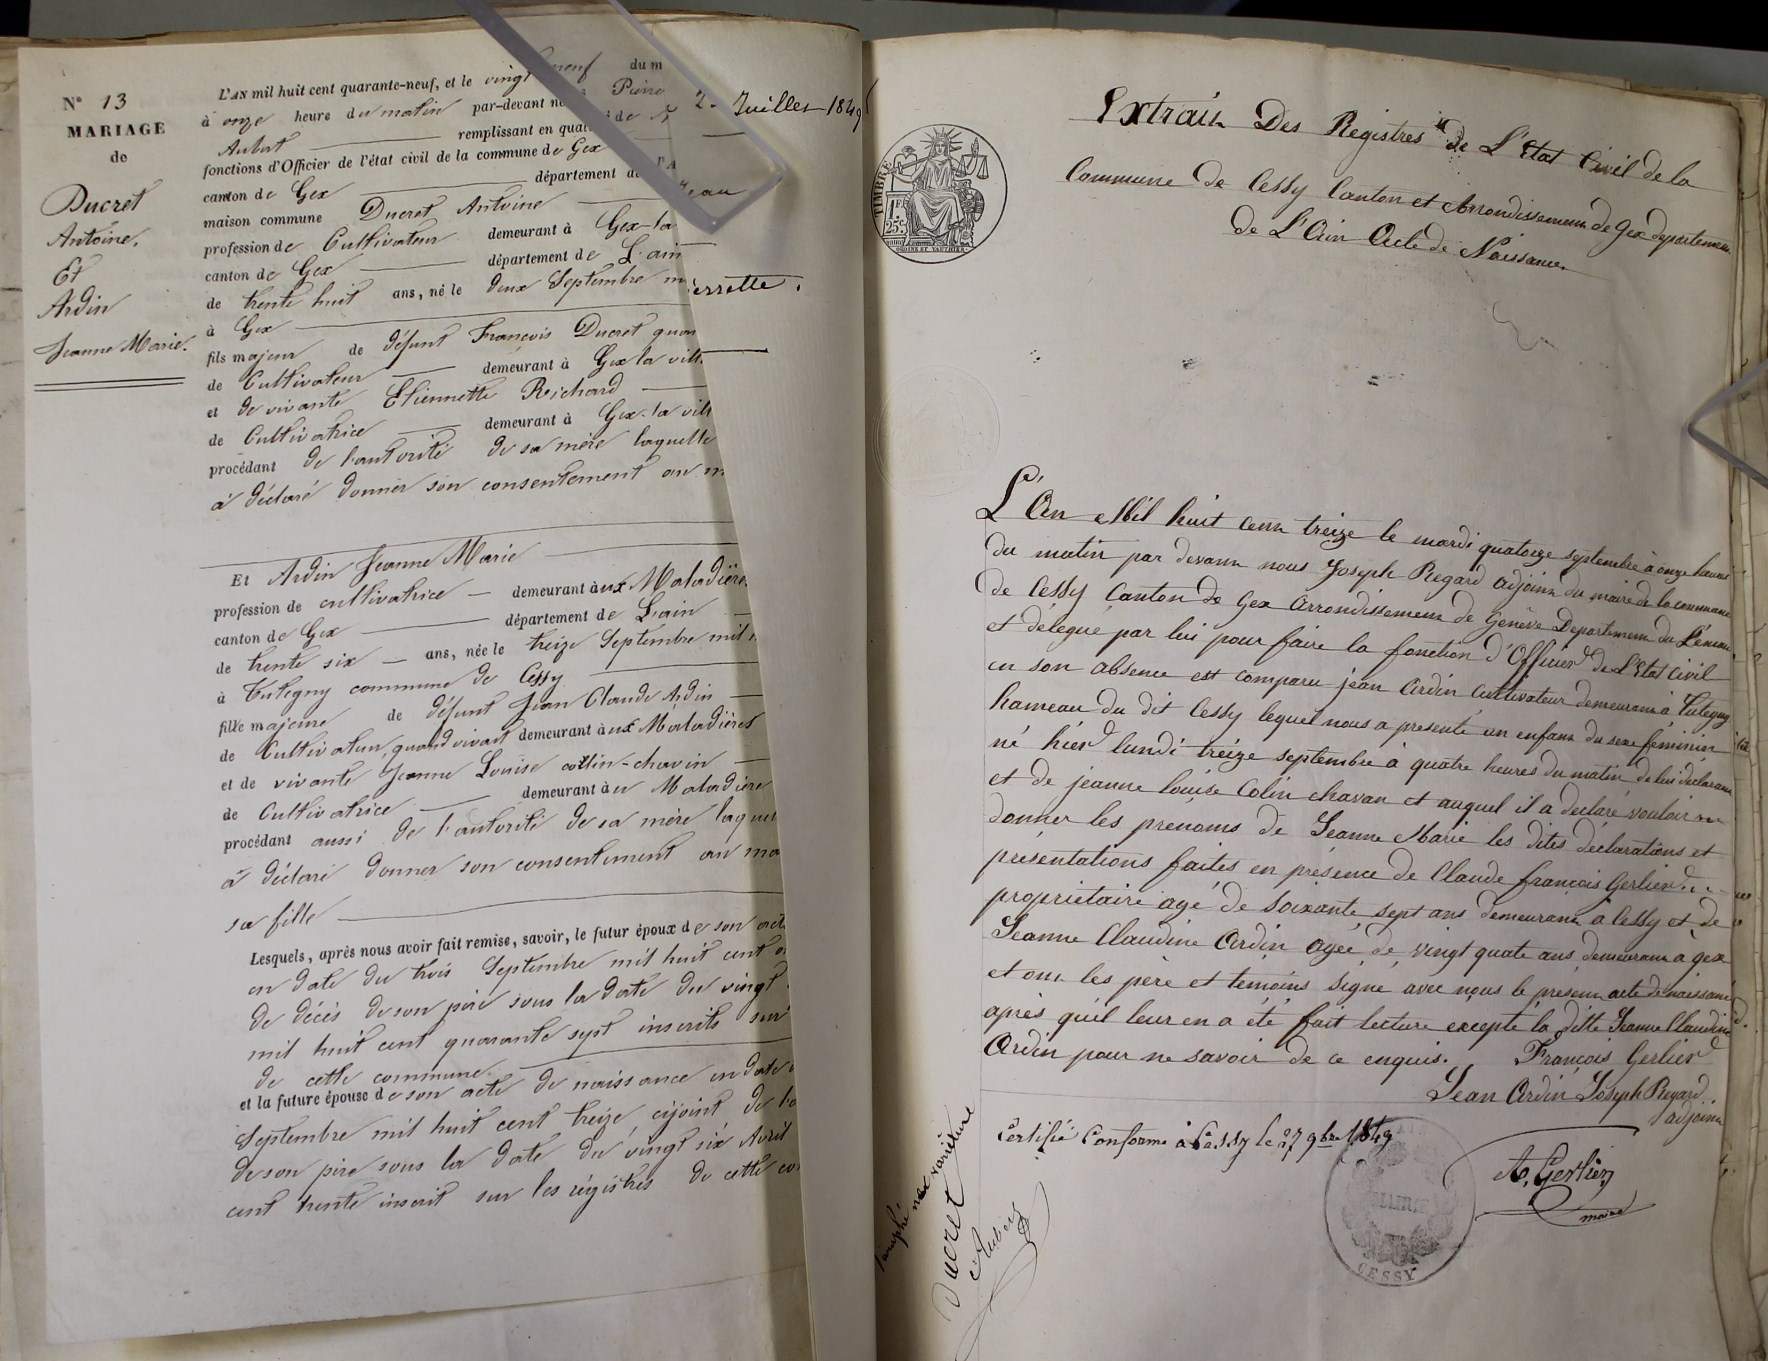 Nº 13
MARIAGE
de
Ducret
Antoine.
Et
Ardin
Jeanne Marie.
L'AN mil huit cent quarante-neuf, et le vingt neuf du m
à onze heure du matin par-devant nous Pierre
Aubert remplissant en qual de
fonctions d'Officier de l'état civil de la commune de Gex
canton de Gex département de l'A
maison commune Ducret Antoine
profession de Cultivateur demeurant à Gex-la
canton de Gex département de L'ain
de trente huit ans, né le deux Septembre m
à Gex
fils majeur de défunt François Ducret quan
de Cultivateur demeurant à Gex la vill
et de vivante Etiennette Reichard
de Cultivatrice demeurant à Gex-la vill
procédant de l'autorité de sa mère laquelle
à déclaré donner son consentement au m
Et Ardin Jeanne Marie
profession de cultivatrice demeurant aux Maladière
canton de Gex département de L'ain
de trente six ans, née le treize Septembre mil
à Tutegny commune de Cessy
fille majeure de défunt Jean Claude Ardin
de Cultivateur, quand vivait demeurant aux Maladières
et de vivante Jeanne Louise collin-chavin
de Cultivatrice demeurant au Maladière
procédant aussi de l'autorité de sa mère laquel
à déclaré donner son consentement au ma
sa fille
Lesquels, après nous avoir fait remise, savoir, le futur époux de son act
en date du trois Septembre mil huit cent o
de décès de son père sous la date du vingt
mil huit cent quarante sept inscrits sur
de cette commune.
et la future épouse de son acte de naissance en date
Septembre mil huit cent treize, cijoint de l'a
de son père sous la date du vingt six Avril
cent trente inscrit sur les régistres de cette co
2. Juillet 1849
eau
errette.
TIMBRE
1F.
25c
Extrait Des Registres de L'Etat Civil de la
Commune de Cessy Canton et Arrondissement de Gex departement
de L'Ain Acte de Naissance
L'An Mil huit cent treize le mardi quatorze septembre à onze heures
du matin par devant nous Joseph Regard adjoint du maire de la commune
de Cessy Canton de Gex arrondissement de Genève Departement du Léman
et délegué par lui pour faire la fonction d'Officier de L'Etat Civil
en son absence est comparu jean Ardin Cultivateur demeurant à Tutegny
hameau du dit Cessy lequel nous a presenté un enfant du sexe féminin
né hier lundi treize septembre à quatre heures du matin de lui déclarant
et de jeanne louise Colin chavan et auquel il a declaré vouloir
donner les prenoms de Jeanne Marie les dites déclarations et
présentations faites en présence de Claude françois Gerlier
proprietaire agé de soixante sept ans demeurant a Cessy et de
Jeanne Claudine Ardin agée de vingt quate ans demeurant à gex
et ont les père et temoins signé avec nous le present acte de naissance
après qu'il leur en a été fait lecture excepté la ditte Jeanne Claudine
Ardin pour ne savoir de ce enquis. François Gerlier
Jean Ardin Joseph Regard
adjoint
Certifié Conforme à Cessy le 27 9bre 1849
A. Gerlier
maire
CESSY
ne varietur
Ducret
Aubert